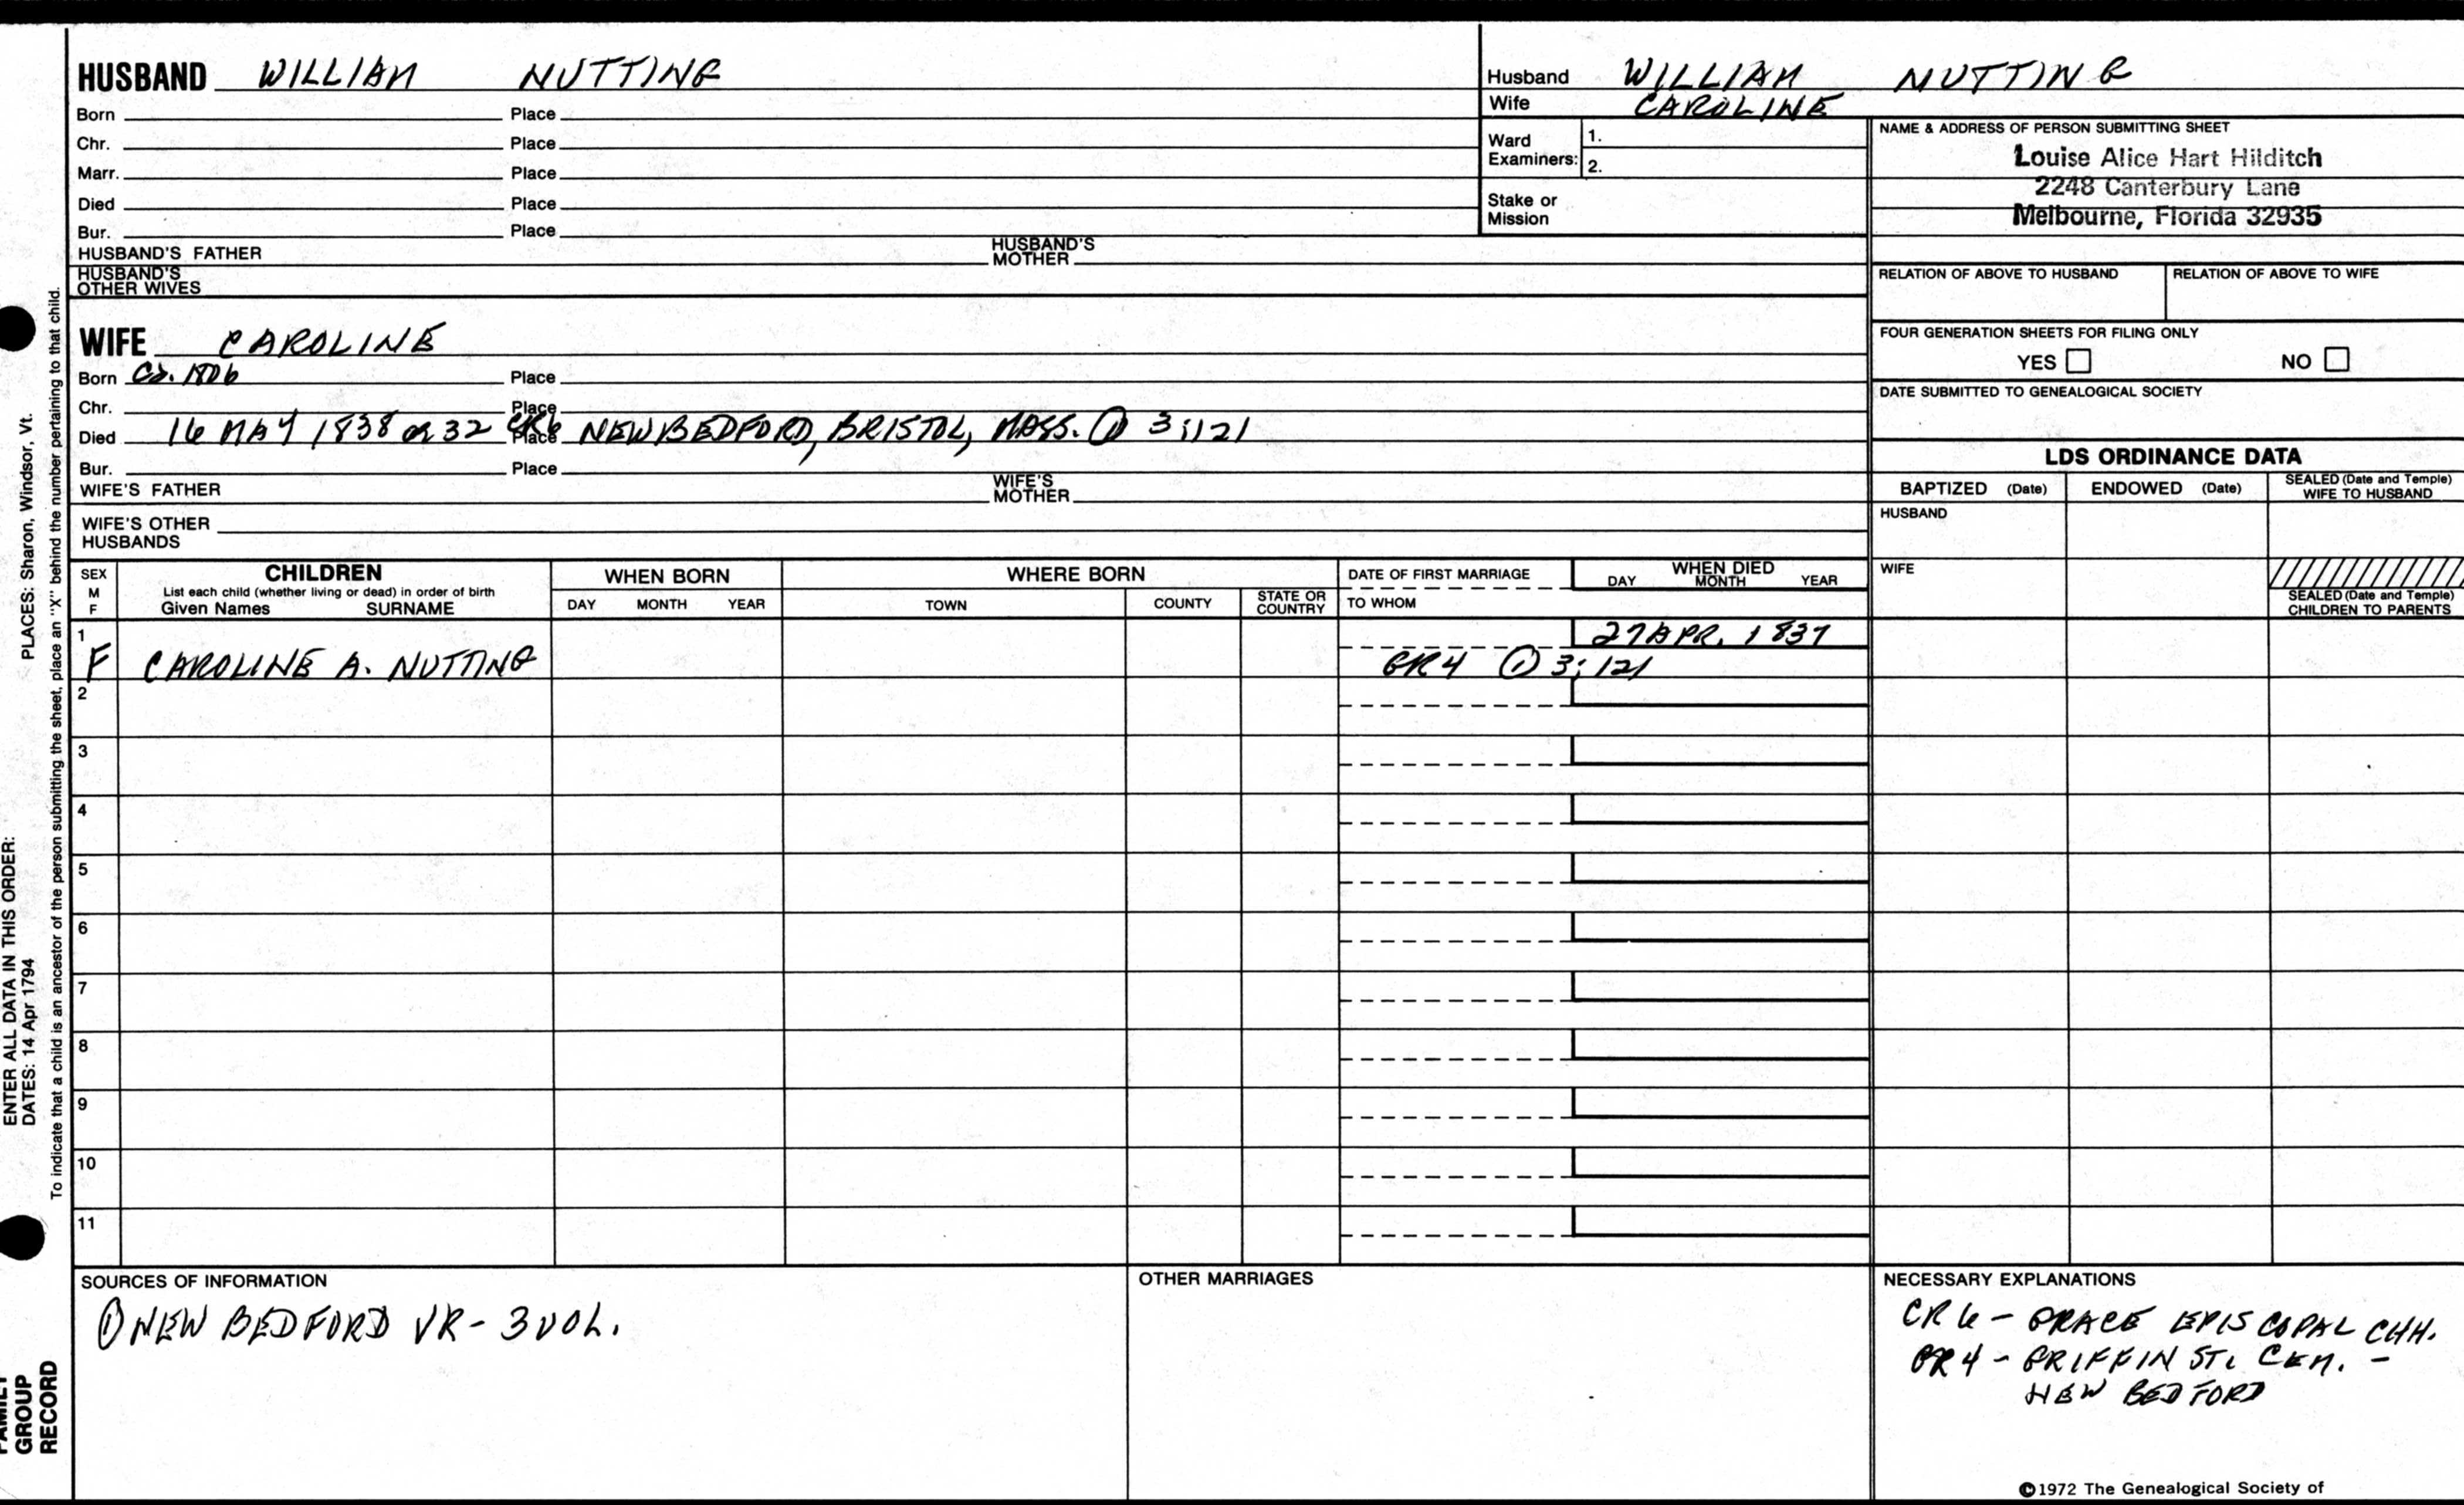 HUSBAND WILLIAM NUTTING
Born Place
Chr. Place
Marr. Place
Died Place
Bur. Place
HUSBAND'S FATHER HUSBAND'S MOTHER
HUSBAND'S OTHER WIVES
WIFE CAROLINE
Born Ca. 1806 Place
Chr. Place
Died 16 MAY 1838 or 32 CR6 Place NEW BEDFORD, BRISTOL, MASS. ① 3:121
Bur. Place
WIFE'S FATHER WIFE'S MOTHER
WIFE'S OTHER HUSBANDS
Husband WILLIAM NUTTING
Wife CAROLINE
Ward Examiners: 1.
2.
Stake or Mission
NAME & ADDRESS OF PERSON SUBMITTING SHEET
Louise Alice Hart Hilditch
2248 Canterbury Lane
Melbourne, Florida 32935
RELATION OF ABOVE TO HUSBAND RELATION OF ABOVE TO WIFE
FOUR GENERATION SHEETS FOR FILING ONLY
YES NO
DATE SUBMITTED TO GENEALOGICAL SOCIETY
LDS ORDINANCE DATA
BAPTIZED (Date) ENDOWED (Date) SEALED (Date and Temple) WIFE TO HUSBAND
HUSBAND
WIFE
SEALED (Date and Temple) CHILDREN TO PARENTS
SEX M F CHILDREN WHEN BORN WHERE BORN DATE OF FIRST MARRIAGE WHEN DIED
List each child (whether living or dead) in order of birth
Given Names SURNAME DAY MONTH YEAR TOWN COUNTY STATE OR COUNTRY TO WHOM DAY MONTH YEAR
1 27 APR. 1837
F CAROLINE A. NUTTING GR4 ① 3:121
2
3
4
5
6
7
8
9
10
11
SOURCES OF INFORMATION
① NEW BEDFORD VR - 3 VOL.
OTHER MARRIAGES
NECESSARY EXPLANATIONS
CR6 - GRACE EPISCOPAL CHH.
GR4 - GRIFFIN ST. CEM. -
NEW BEDFORD
©1972 The Genealogical Society of
ENTER ALL DATA IN THIS ORDER:
DATES: 14 Apr 1794 PLACES: Sharon, Windsor, Vt.
To indicate that a child is an ancestor of the person submitting the sheet, place an "X" behind the number pertaining to that child.
FAMILY
GROUP
RECORD